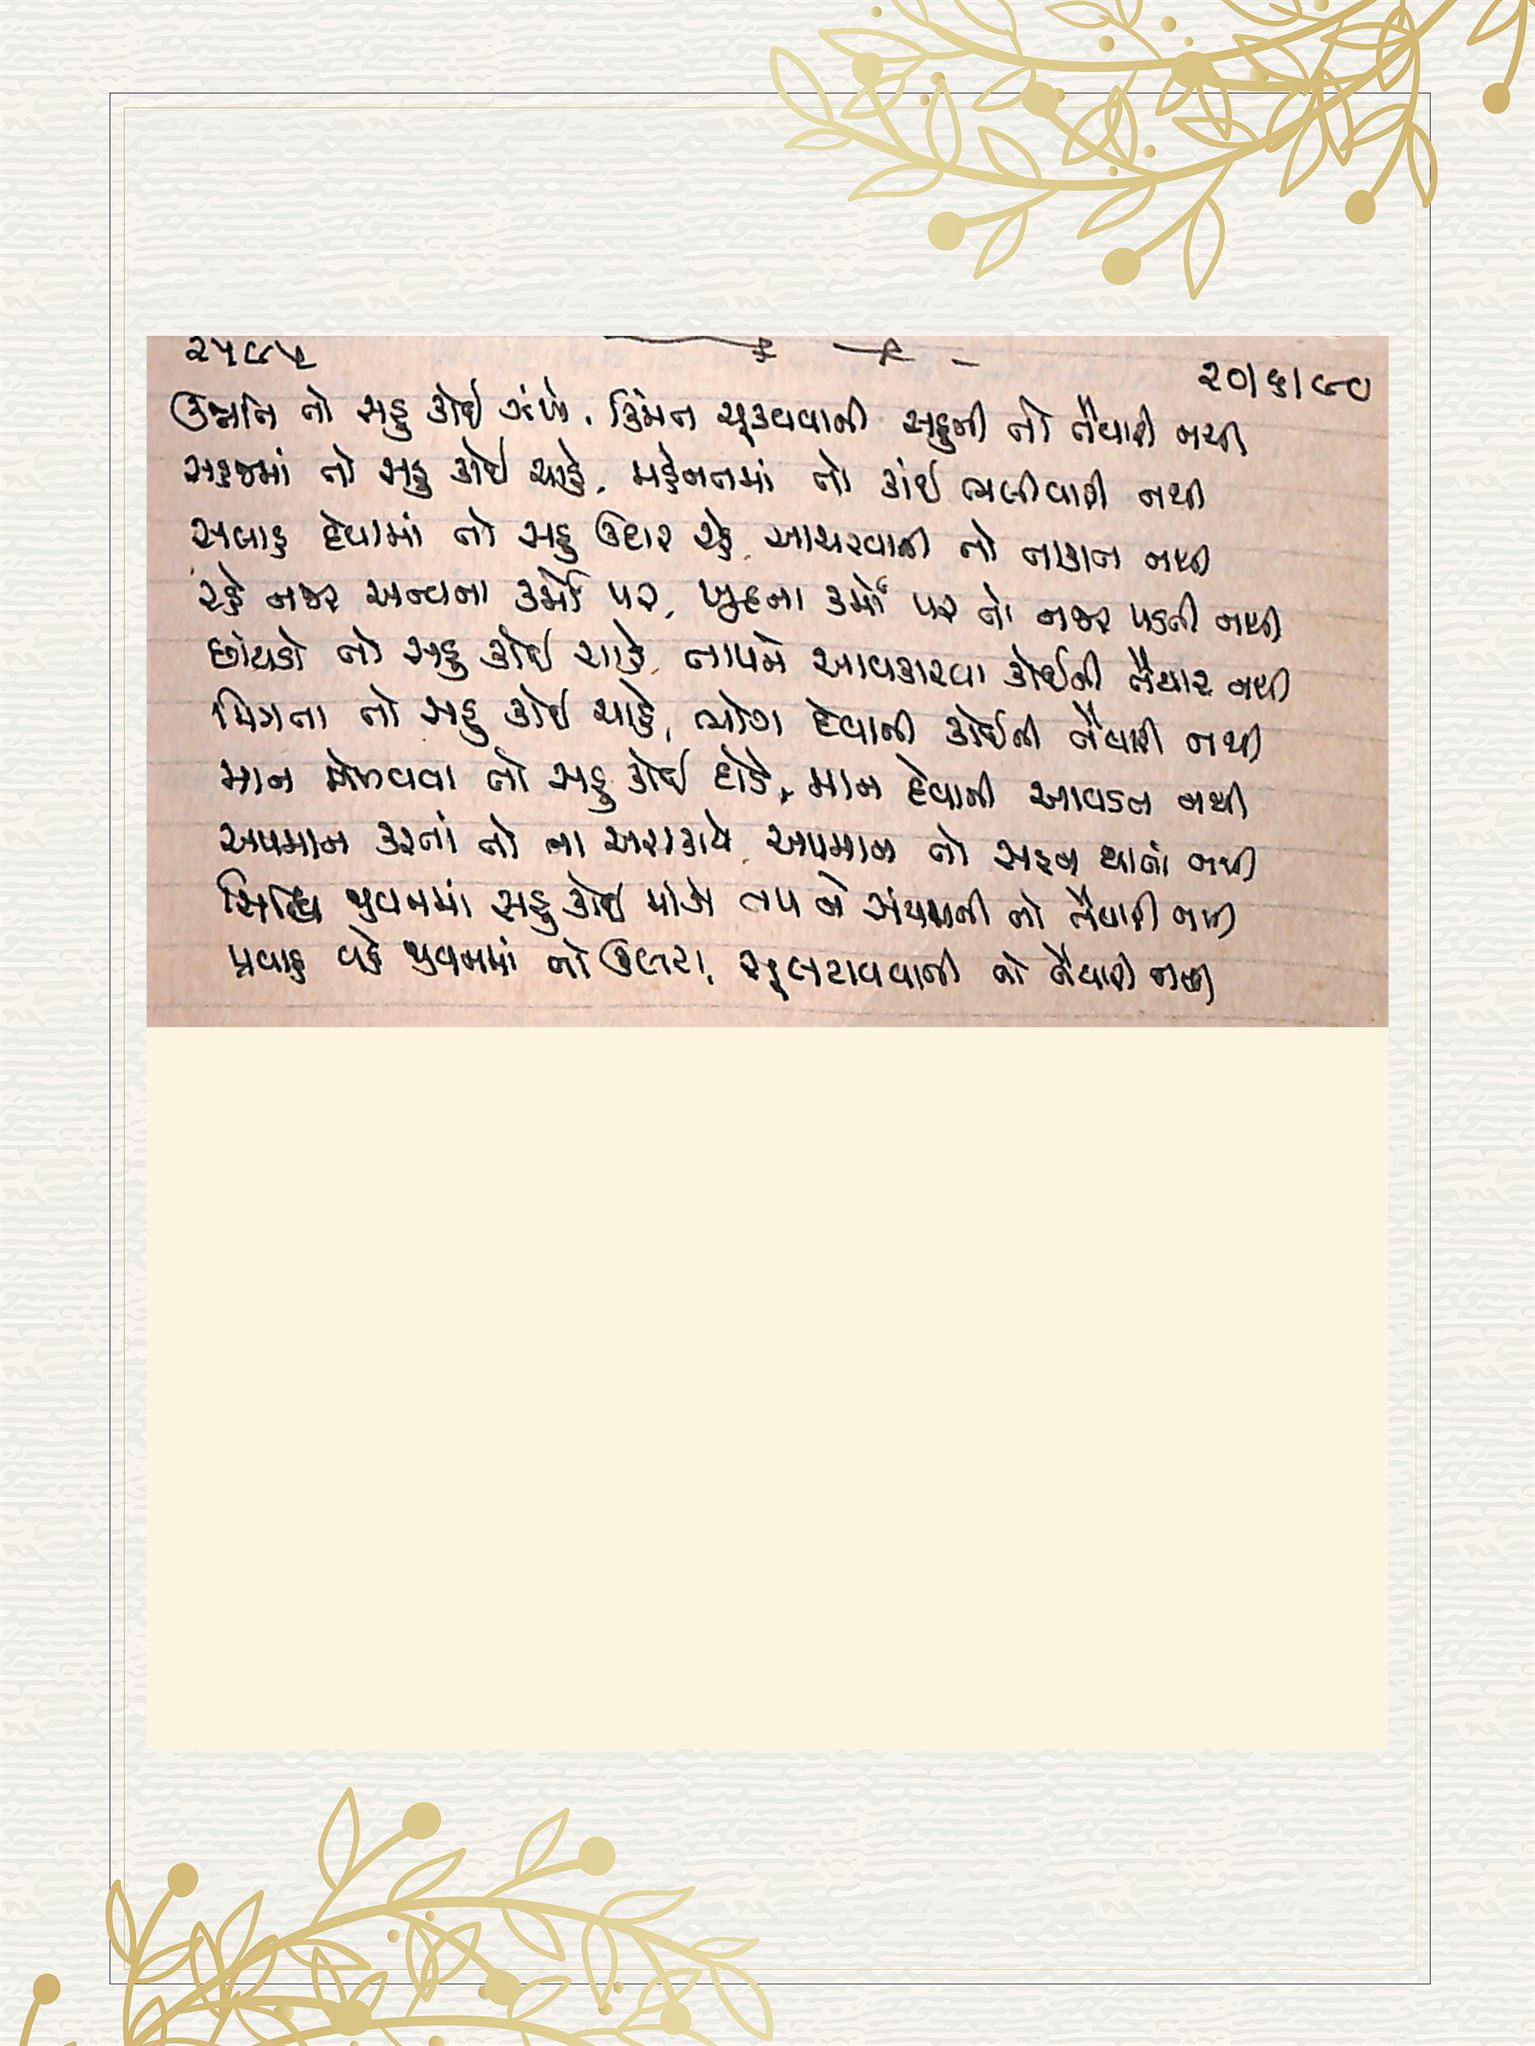 ૨૫૯૫
૨૦/૬/૯૦
ઉન્નતિ તો સહુ કોઈ ઝંખે, કિંમત ચૂકવવાની સહુની તો તૈયારી નથી
સહજમાં તો સહુ કોઈ ચાહે, મહેનતમાં તો કાંઈ ભલીવારી નથી
સલાહ દેવામાં તો સહુ ઉદાર રહે આચરવાની તો તાકાત નથી
રહે નજર અન્યના કર્મો પર, ખુદના કર્મો પર તો નજર પડતી નથી
છાંયડો તો સહુ કોઈ ચાહે, તાપને આવકારવા કોઈની તૈયાર નથી
મિત્રતા તો સહુ કોઈ ચાહે, ભોગ દેવાની કોઈની તૈયારી નથી
માન મેળવવા તો સહુ કોઈ દોડે, માન દેવાની આવડત નથી
અપમાન કરતાં તો ના અચકાયે અપમાન તો સહન થાતાં નથી
સિદ્ધિ જીવનમાં સહુ કોઈ માંગે તપ ને સંયમની તો તૈયારી નથી
પ્રવાહ વહે જીવનમાં તો ઉલટા, સૂલટાવવાની તો તૈયારી નથી